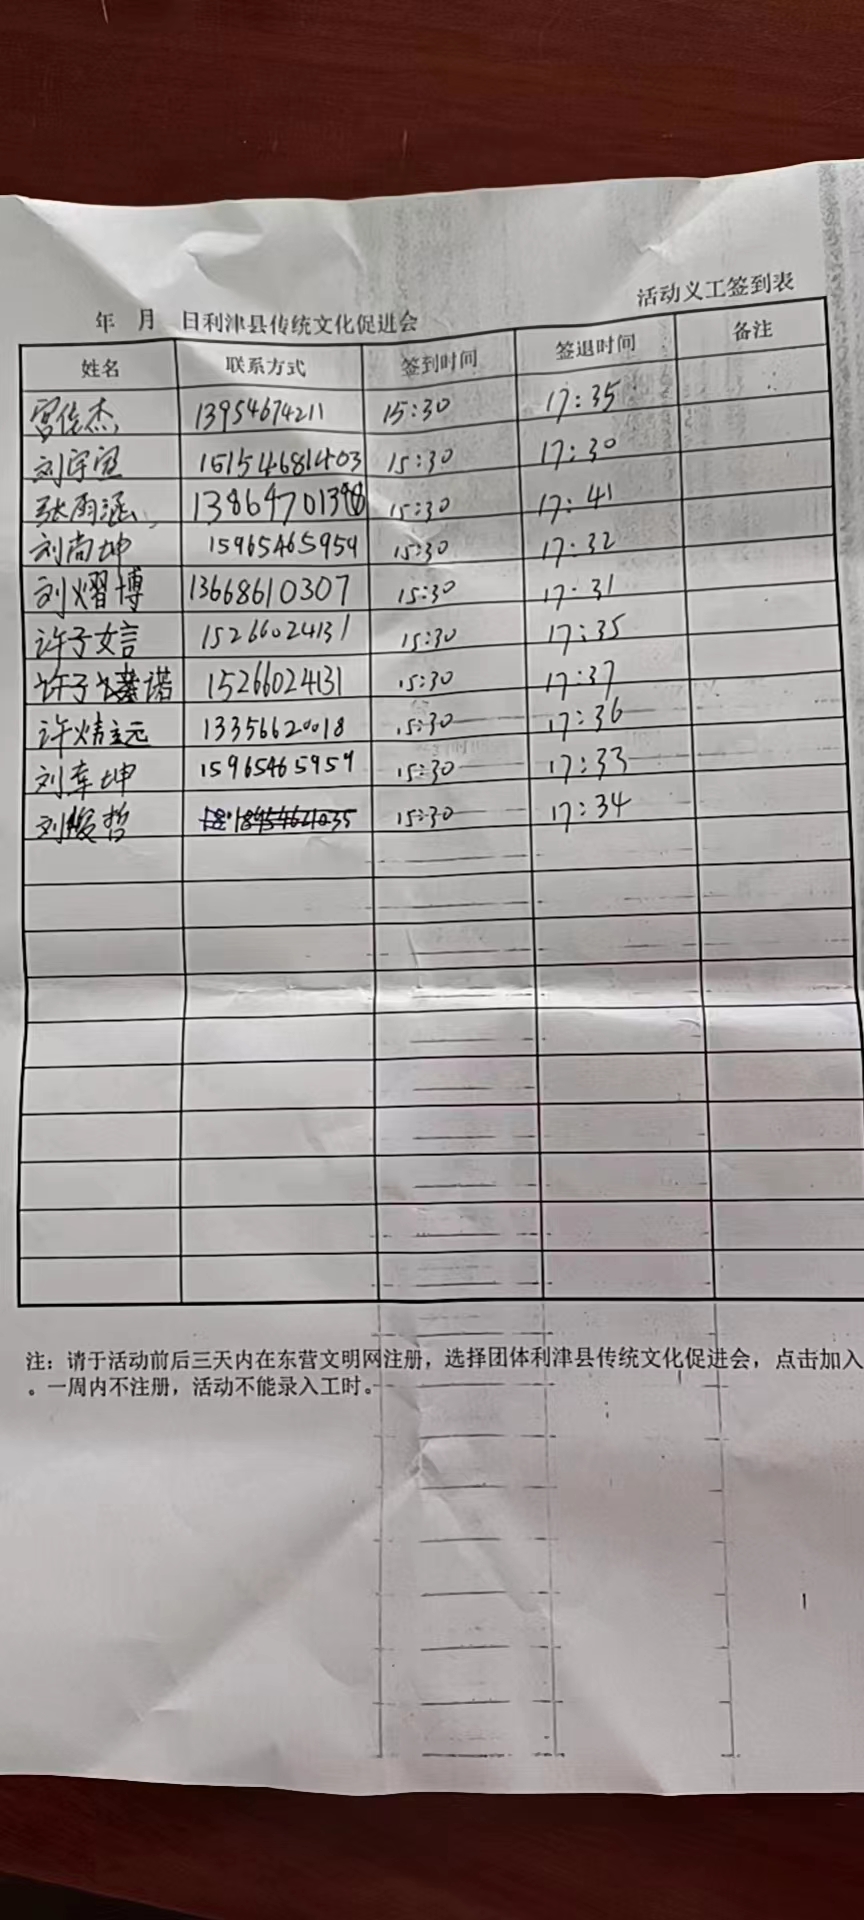 活动义工签到表
年 月 日利津县传统文化促进会
姓名 联系方式 签到时间 签退时间 备注
宫俊杰 13954674211 15:30 17:35
刘宇 15:30 17:30
张雨涵 15:30 17:41
刘尚坤 15965465954 15:30 17:32
刘熠博 13668610307 15:30 17:31
许子言 15266024131 15:30 17:35
许子诺 15266024131 15:30 17:37
许远 13356620018 15:30 17:36
刘坤 15965465954 15:30 17:33
刘俊哲 15:30 17:34
注：请于活动前后三天内在东营文明网注册，选择团体利津县传统文化促进会，点击加入
。一周内不注册，活动不能录入工时。